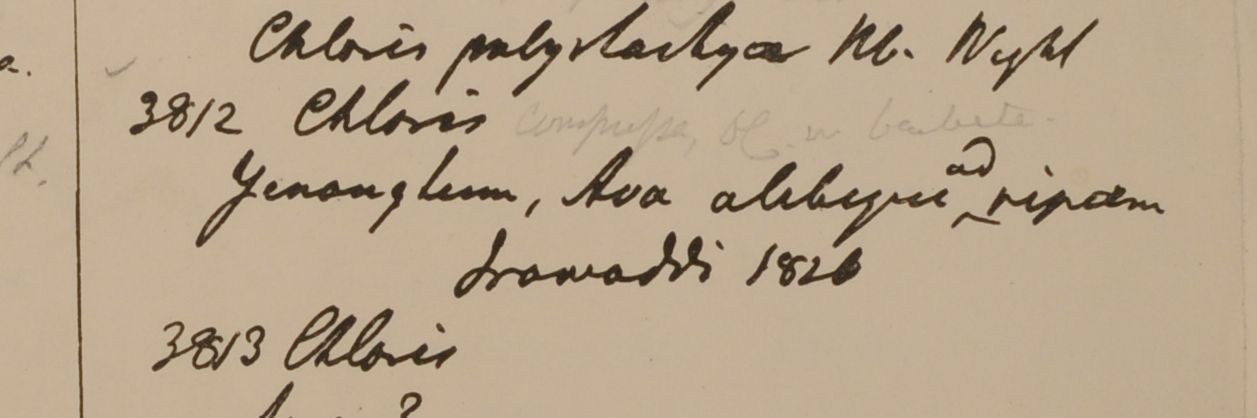 Chloris polystachya Hb. Wight
3812 Chloris compressa, DC. in barbata.
Yenanghum, Ava alibique ad ripam
Irawaddi 1826
3813 Chloris